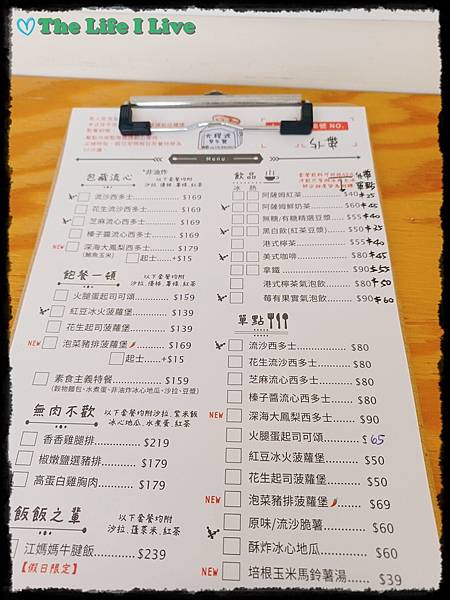 The Life I Live
號 NO.
Menu
包藏流心
*非油炸
以下套餐均附
沙拉、優格、薯條、紅茶
流沙西多士 $169
花生流沙西多士 $169
芝麻流心西多士 $169
榛子醬流心西多士 $169
NEW 深海大鳳梨西多士 $179
(鮪魚玉米) 起士 +$15
飽餐一頓
以下套餐均附
沙拉、優格、薯條、紅茶
火腿蛋起司可頌 $159
紅豆冰火菠蘿堡 $139
花生起司菠蘿堡 $139
NEW 泡菜豬排菠蘿堡 $169
起士 +$15
素食主義特餐 $159
(穀物麵包、水煮蛋、非油炸冰心地瓜、沙拉、豆漿)
無肉不歡
以下套餐均附沙拉、紫米飯
冰心地瓜、水煮蛋、紅茶
香香雞腿排 $219
椒燉鹽選豬排 $179
高蛋白雞胸肉 $179
飯飯之輩
以下套餐均附
沙拉、蓬萊米、紅茶
江媽媽牛腱飯 $239
【假日限定】
飲品
冰 熱
阿薩姆紅茶 $40 $25
阿薩姆鮮奶茶 $60 $45
無糖/有糖精選豆漿 $55 $40
黑白飲(紅茶豆漿) $50
港式檸茶 $55 $40
美式咖啡 $60 $45
拿鐵 $70 $55
港式檸茶氣泡飲 $80 $50
莓有果實氣泡飲 $90 $60
單點
流沙西多士 $80
花生流沙西多士 $80
芝麻流心西多士 $80
榛子醬流心西多士 $80
NEW 深海大鳳梨西多士 $90
火腿蛋起司可頌 $65
紅豆冰火菠蘿堡 $50
花生起司菠蘿堡 $50
NEW 泡菜豬排菠蘿堡 $69
原味/流沙脆薯 $60
酥炸冰心地瓜 $60
NEW 培根玉米馬鈴薯湯 $39